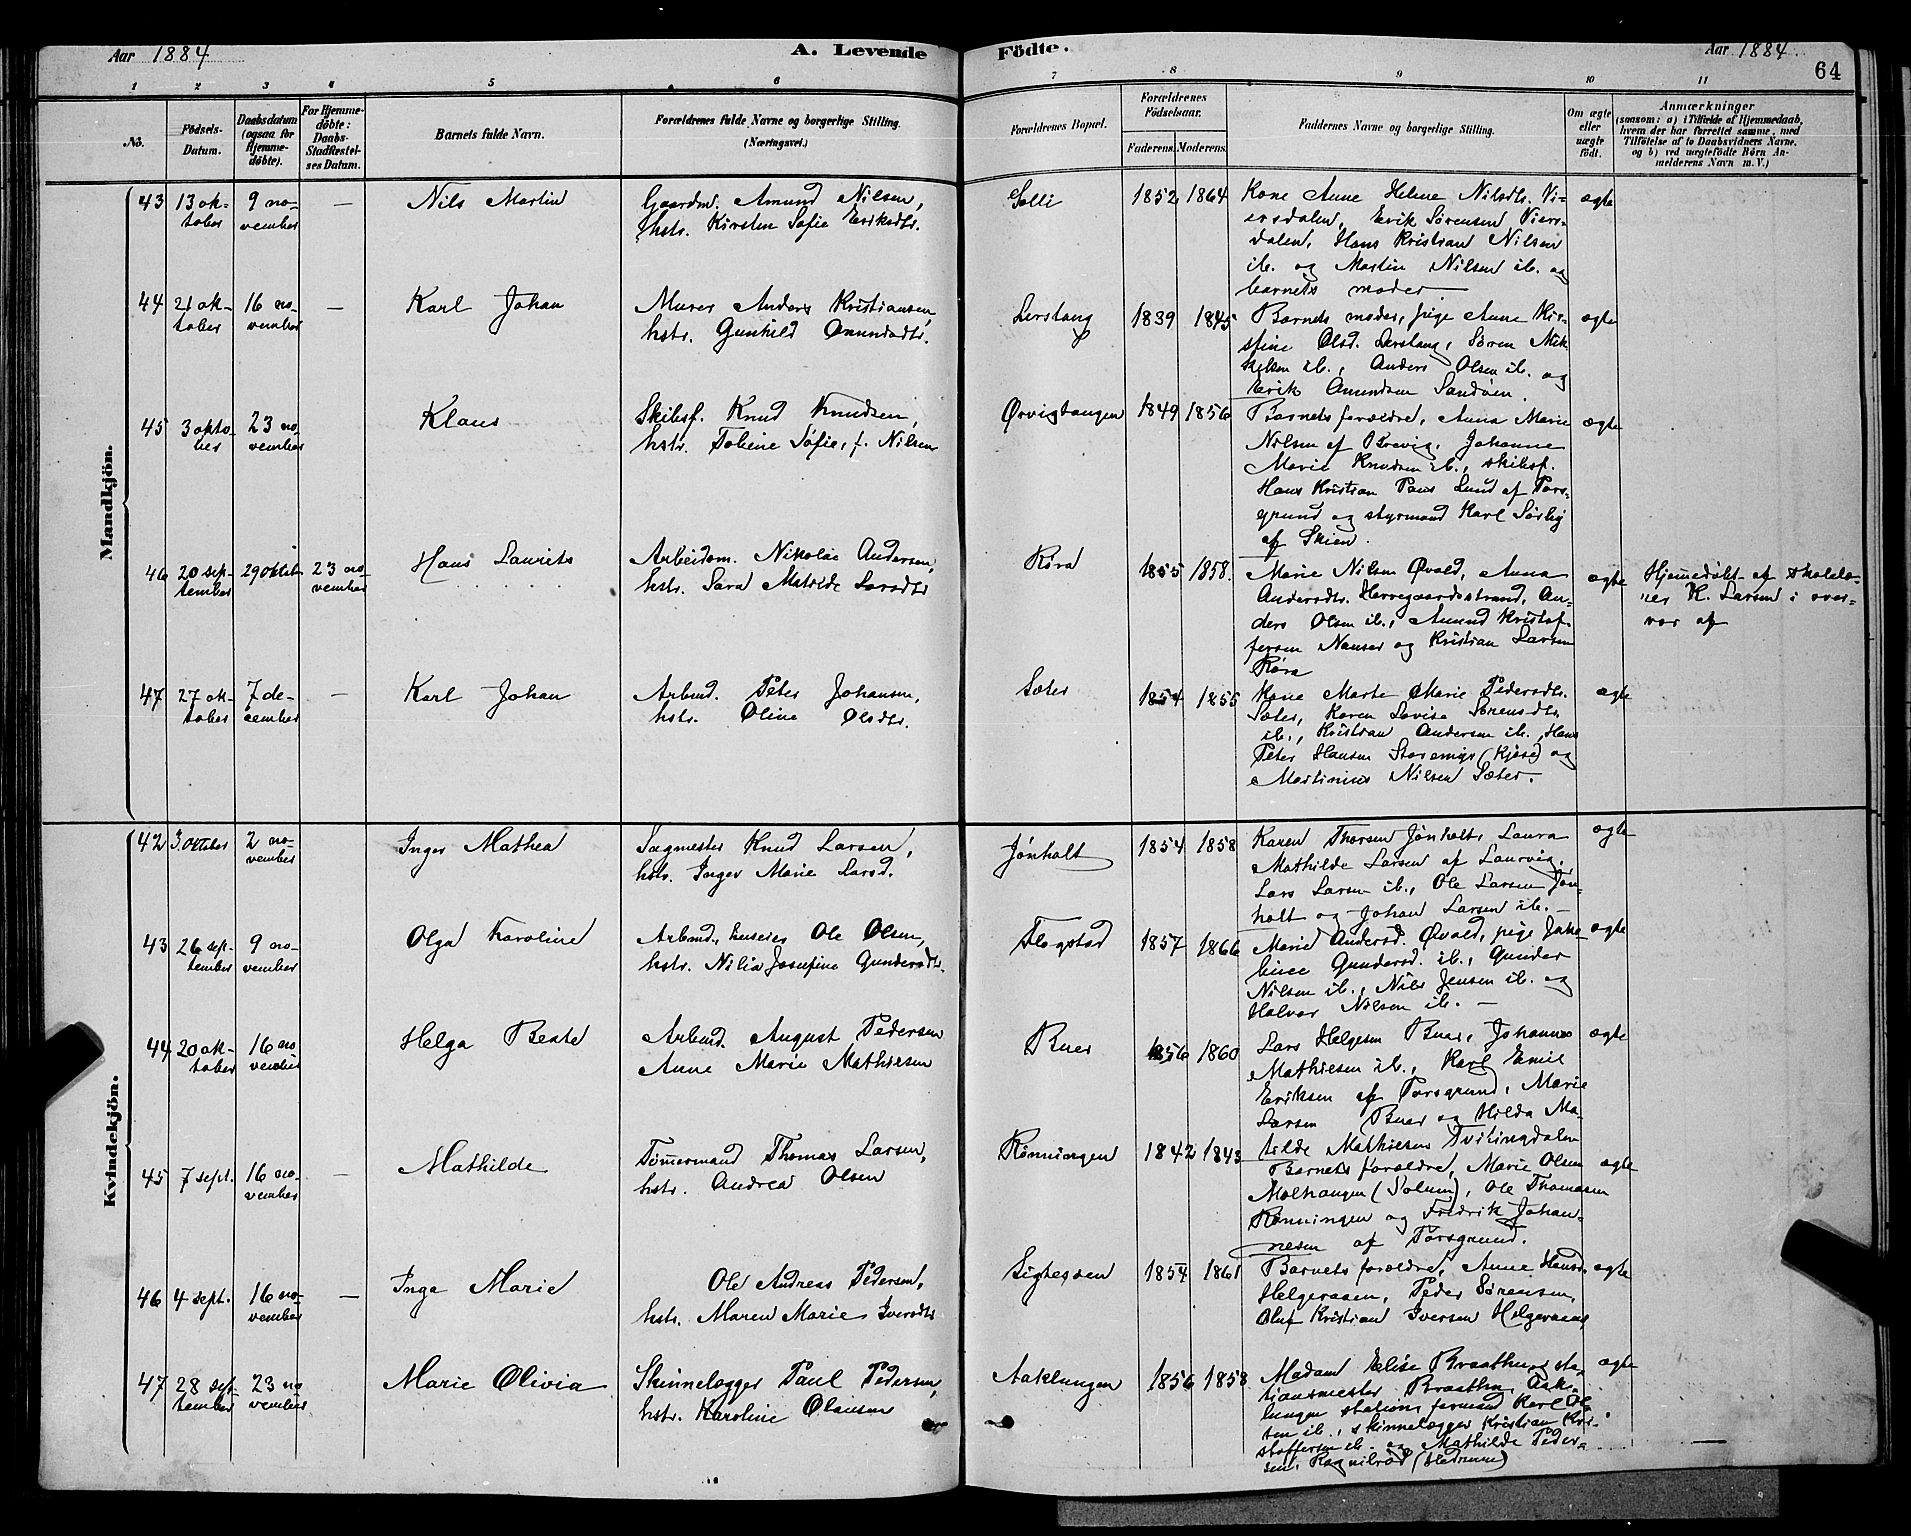 Aar 1884
A. Levende
Födte.
Aar 1884
64
1 2 3 4 5 6 7 8 9 10 11
No.
Födsels-
Datum.
Daabsdatum
(ogsaa for
Hjemme-
döbte).
For Hjemme-
döbte:
Daabs-
Stadfæstel-
ses Datum.
Barnets fulde Navn.
Forældrenes fulde Navne og borgerlige Stilling.
(Næringsvei.)
Forældrenes Bopæl.
Forældrenes
Födselsaar.
Faderens. Moderens.
Faddernes Navne og borgerlige Stilling.
Om ægte
eller
uægte
födt.
Anmærkninger
(saasom: a) i Tilfælde af Hjemmedaab,
hvem der har forrettet samme, med
Tilföielse af to Daabsvidners Navne,
og b) ved uægtefödte Börn An-
melderens Navn m. V.)
Mandkjön.
43 13 ok-
tober
9 no-
vember
—
Nils Martin
Gaardm. Amund Nilsen,
hstr. Kirsten Sofie Eriksdtr.
Solli
1852 1864
Kone Anne Helene Nilsdtr. Vi-
ersdalen, Erik Sørensen Viers-
dalen, Hans Kristian Nilsen
ib. og Martin Nilsen ib. og
barnets moder
ægte
44 21 ok-
tober
16 no-
vember
—
Karl Johan
Murer Anders Kristiansen,
hstr. Gunhild Amundsdtr.
Lerstang
1839 1845
Barnets moder, pige Anne Kir-
stine Olsd. Lerstang, Søren Mik-
kelsen ib., Anders Olsen ib. og
Erik Amundsen Sandøen.
ægte
45 3 okto-
ber
23 no-
vember
Klaus
Skibsf. Knud Knudsen,
hstr. Tobine Sofie, f. Nilsen
Ørvigtangen
1849 1856
Barnets forældre, Anna Marie
Nilsen af Brevig, Johanne
Marie Knudsen ib., skibsf.
Hans Kristian Paus Lund af Pors-
grund og styrmand Karl Sørlig
af Skien.
ægte
46 20 sep-
tember
29 oktbr
23 no-
vember
Hans Laurits
Arbeidsm. Nikolai Andersen,
hstr. Sara Matilde Larsdtr
Røra
1855 1858.
Marie Nilsen Øvald, Anna
Andersdtr. Herregaardsstrand, An-
ders Olsen ib., Amund Kristof-
fersen Nanset og Kristian Larsen
Røra
ægte
Hjemmedøbt af skolelæ-
rer K. Larsen i over-
vær af
47 27 ok-
tober
7 de-
cember
—
Karl Johan
Arbmd. Peter Johansen,
hstr. Oline Olsdtr.
Sæter
1854 1855
Kone Marte Marie Pedersdtr.
Sæter, Karen Lovise Sørensdtr.
ib., Kristian Andersen ib., Hans
Peter Hansen Storemyr (Kjose) og
Martinius Nilsen Sæter.
ægte
Kvindekjön.
42 3. oktober
2 no-
vember
Inger Mathea
Sagmester Knud Larsen,
hstr. Inger Marie Larsd.
Jønholt
1854 1858
Karen Thorsen Jønholt, Laura
Mathilde Larsen af Laurvig,
Lars Larsen ib., Ole Larsen Jøn-
holt og Johan Larsen ib. —
ægte
43 26 sep-
tember
9 no-
vember
Olga Karoline
Arbmd., huseier Ole Olsen,
hstr. Nilia Josefine Gundersdtr.
Flogstad
1857 1866
Marie Andersd. Øvald, pige Jako-
bine Gundersd. ib., Gunder
Nilsen ib., Nils Jensen ib. og
Halvor Nilsen ib. —
ægte
44 20 ok-
tober
16 no-
vember
Helga Beate
Arbmd. August Pedersen
Anne Marie Mathiesen
Buer
1856 1860
Lars Helgesen Buer, Johannes
Mathiesen ib., Karl Emil
Eriksen af Porsgrund, Marie
Larsen Buer og Hilda Ma-
tilde Mathiesen Tvitingdalen
ægte
45 7 sept.
16 no-
vember
—
Mathilde
Tømmermand Thomas Larsen,
hstr. Andrea Olsen
Rønningen
1842 1843
Barnets forældre, Marie Olsen
Molhaugen (Solum), Ole Thomasen
Rønningen og Fredrik Johan-
nesen af Porsgrund.
ægte
46 4 sept.
16 no-
vember
—
Inga Marie
Ole Andreas Pedersen,
hstr. Maren Marie Iversdtr
Sigtesøen
1854 1861
Barnets forældre, Anne Hansd.
Helgeraaen, Peder Sørensen,
Oluf Kristian Iversen Helgeraaen
ægte
47 28 sep-
tember
23 no-
vember
Marie Olivia
Skinnelægger Paul Pedersen,
hstr. Karoline Olausen
Aaklungen
1856 1858
Madam Elise Braathen, sta-
tionsmester Braathen, Aak-
lungen station, formand Karl Ol-
sen ib., skinnelægger Kristian Kri-
stoffersen ib. og Mathilde Peder-
sen, Ragnilrød (Hedrum)
ægte